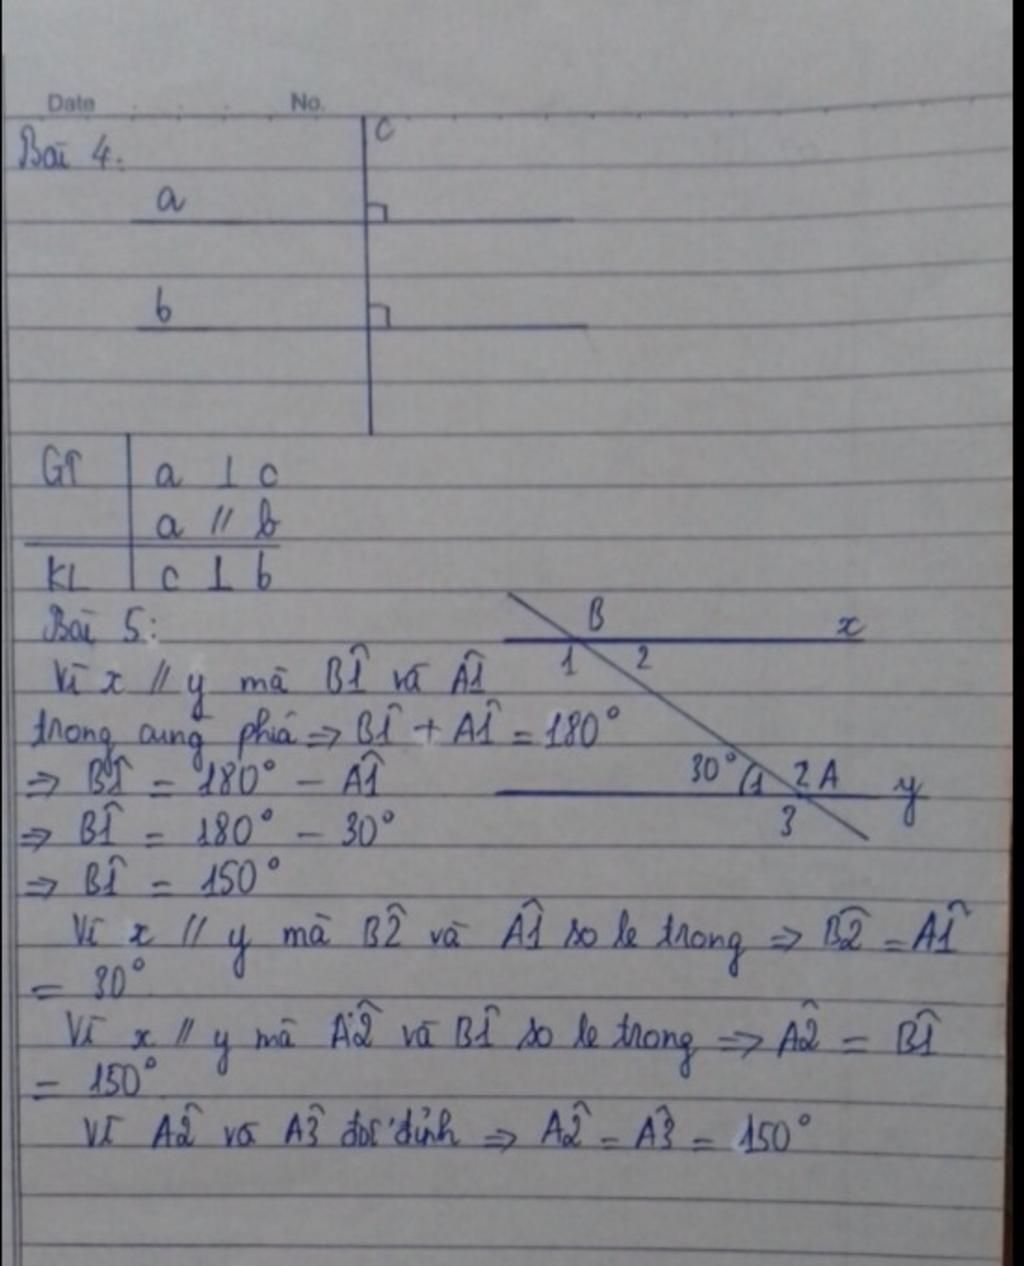 Date No.
Bài 4:
c
a
b
GT a ⊥ c
a // b
KL c ⊥ b
Bài 5:
B x
1 2
30° 1 2 A y
3
Vì x // y mà B̂1 và Â1
trong cùng phía ⇒ B̂1 + Â1 = 180°
⇒ B̂1 = 180° - Â1
⇒ B̂1 = 180° - 30°
⇒ B̂1 = 150°
Vì x // y mà B̂2 và Â1 so le trong ⇒ B̂2 = Â1
= 30°
Vì x // y mà Â2 và B̂1 so le trong ⇒ Â2 = B̂1
= 150°
Vì Â2 và Â3 đối đỉnh ⇒ Â2 = Â3 = 150°